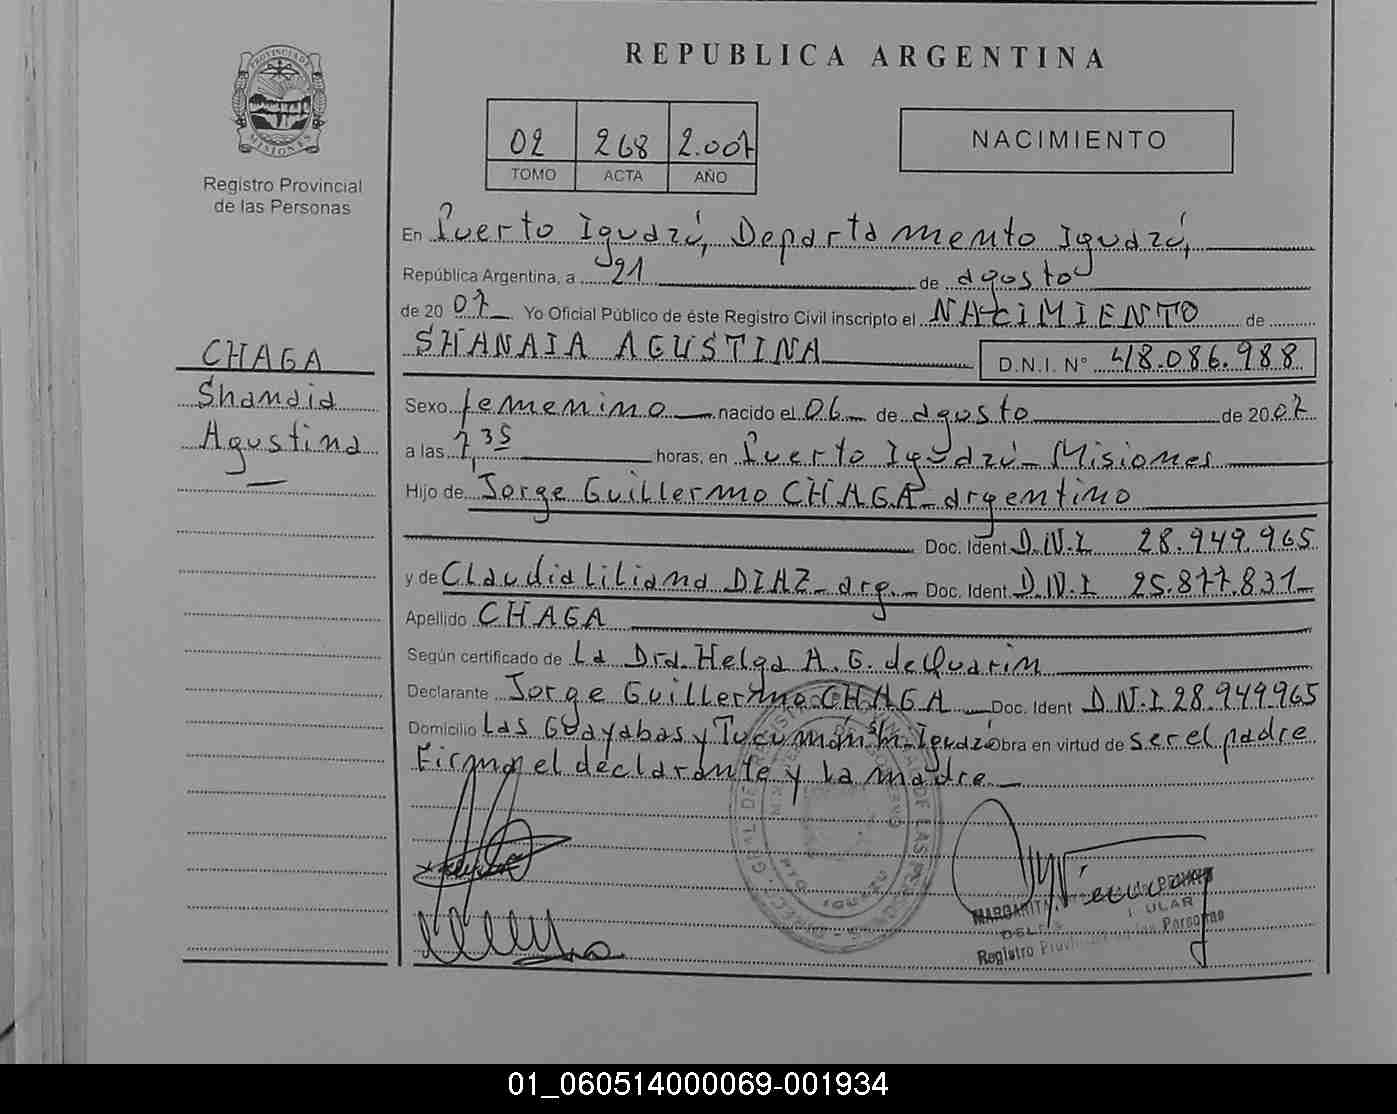 REPUBLICA ARGENTINA
PROVINCIA DE
MISIONES
Registro Provincial
de las Personas
02 268 2.007
TOMO ACTA AÑO
NACIMIENTO
En Puerto Iguazú, Departamento Iguazú,
República Argentina, a 21 de agosto
de 20 07 Yo Oficial Público de éste Registro Civil inscripto el NACIMIENTO de
SHANAIA AGUSTINA D.N.I. N° 48.086.988
CHAGA
Shanaia
Agustina
Sexo femenino nacido el 06 de agosto de 20 07
a las 7,35 horas, en Puerto Iguazú - Misiones
Hijo de Jorge Guillermo CHAGA - argentino
Doc. Ident D.N.I 28.949.965
y de Claudia Liliana DIAZ - arg. - Doc. Ident D.N.I 25.877.831
Apellido CHAGA
Según certificado de La Dra. Helga A. G. de Quarin
Declarante Jorge Guillermo CHAGA Doc. Ident D.N.I 28.949.965
Domicilio Las Guayabas y Tucumán s/n - Iguazú obra en virtud de ser el padre
Firma el declarante y la madre
MARGARITA
Registro
01_060514000069-001934